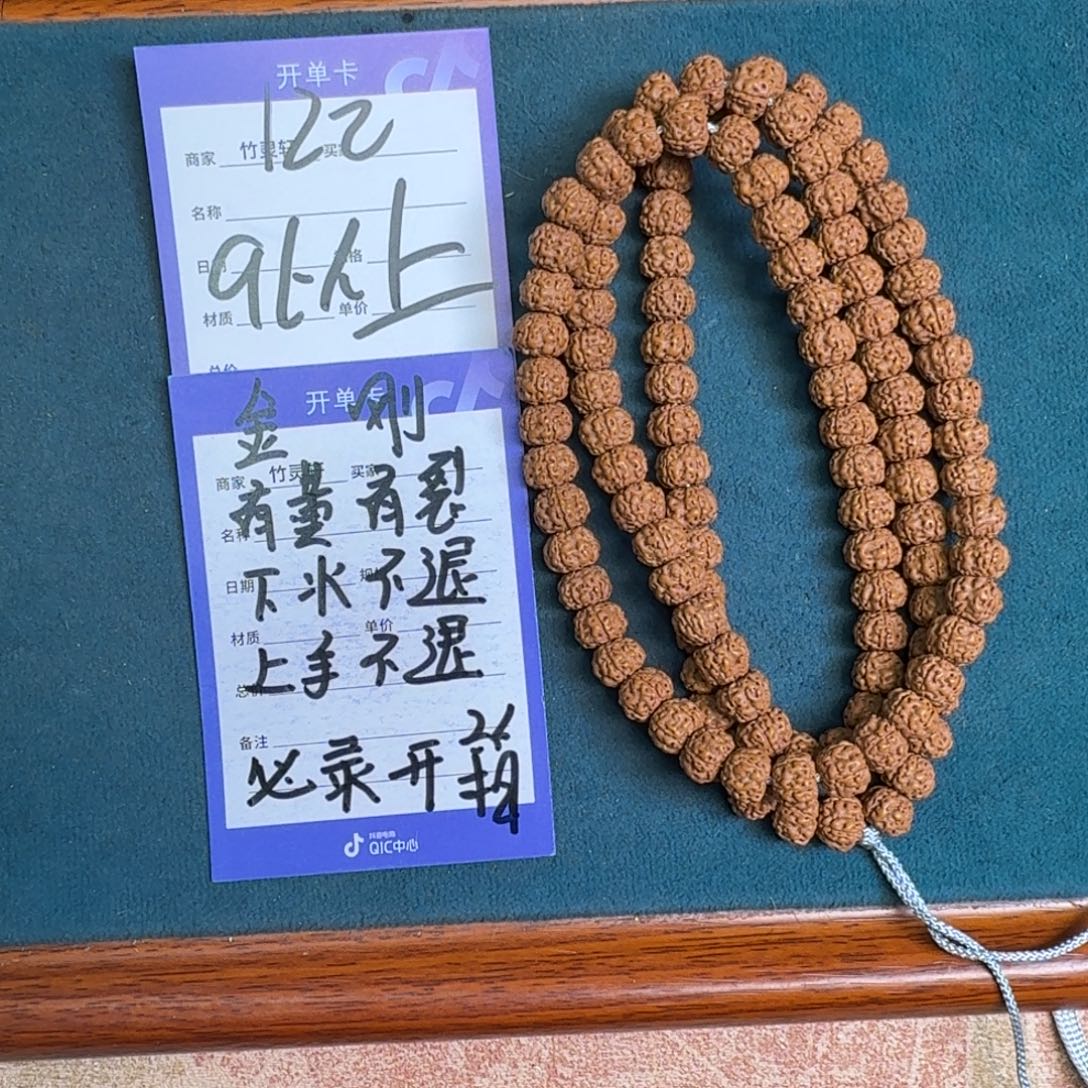 开单卡
122
商家 竹灵轩 买家
名称
日期
材质 单价
总价
开单卡
金刚
商家 竹灵轩 买家
有量有裂
名称
下水不退
日期 规格
材质 单价
上手不退
总价
备注
必录开箱
抖音电商
QIC中心